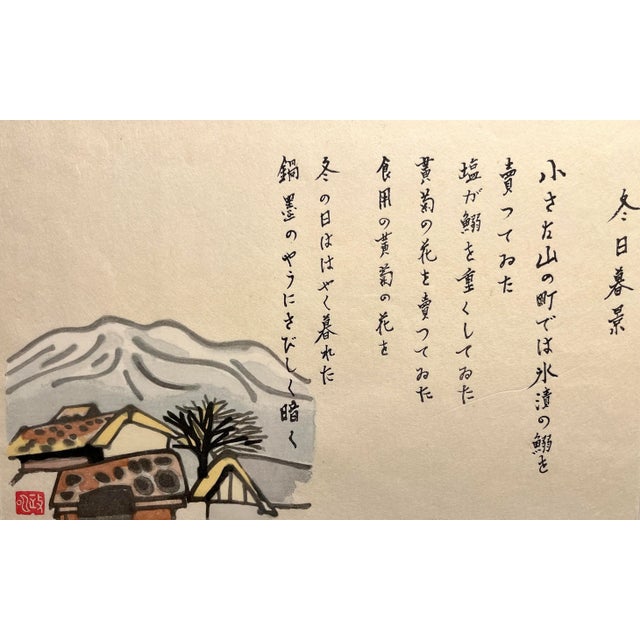 冬日暮景
小さな山の町では氷漬の鰯を
賣つてゐた
塩が鰯を重くしてゐた
黄菊の花を賣つてゐた
食用の黄菊の花を
冬の日ははやく暮れた
鍋墨のやうにさびしく暗く